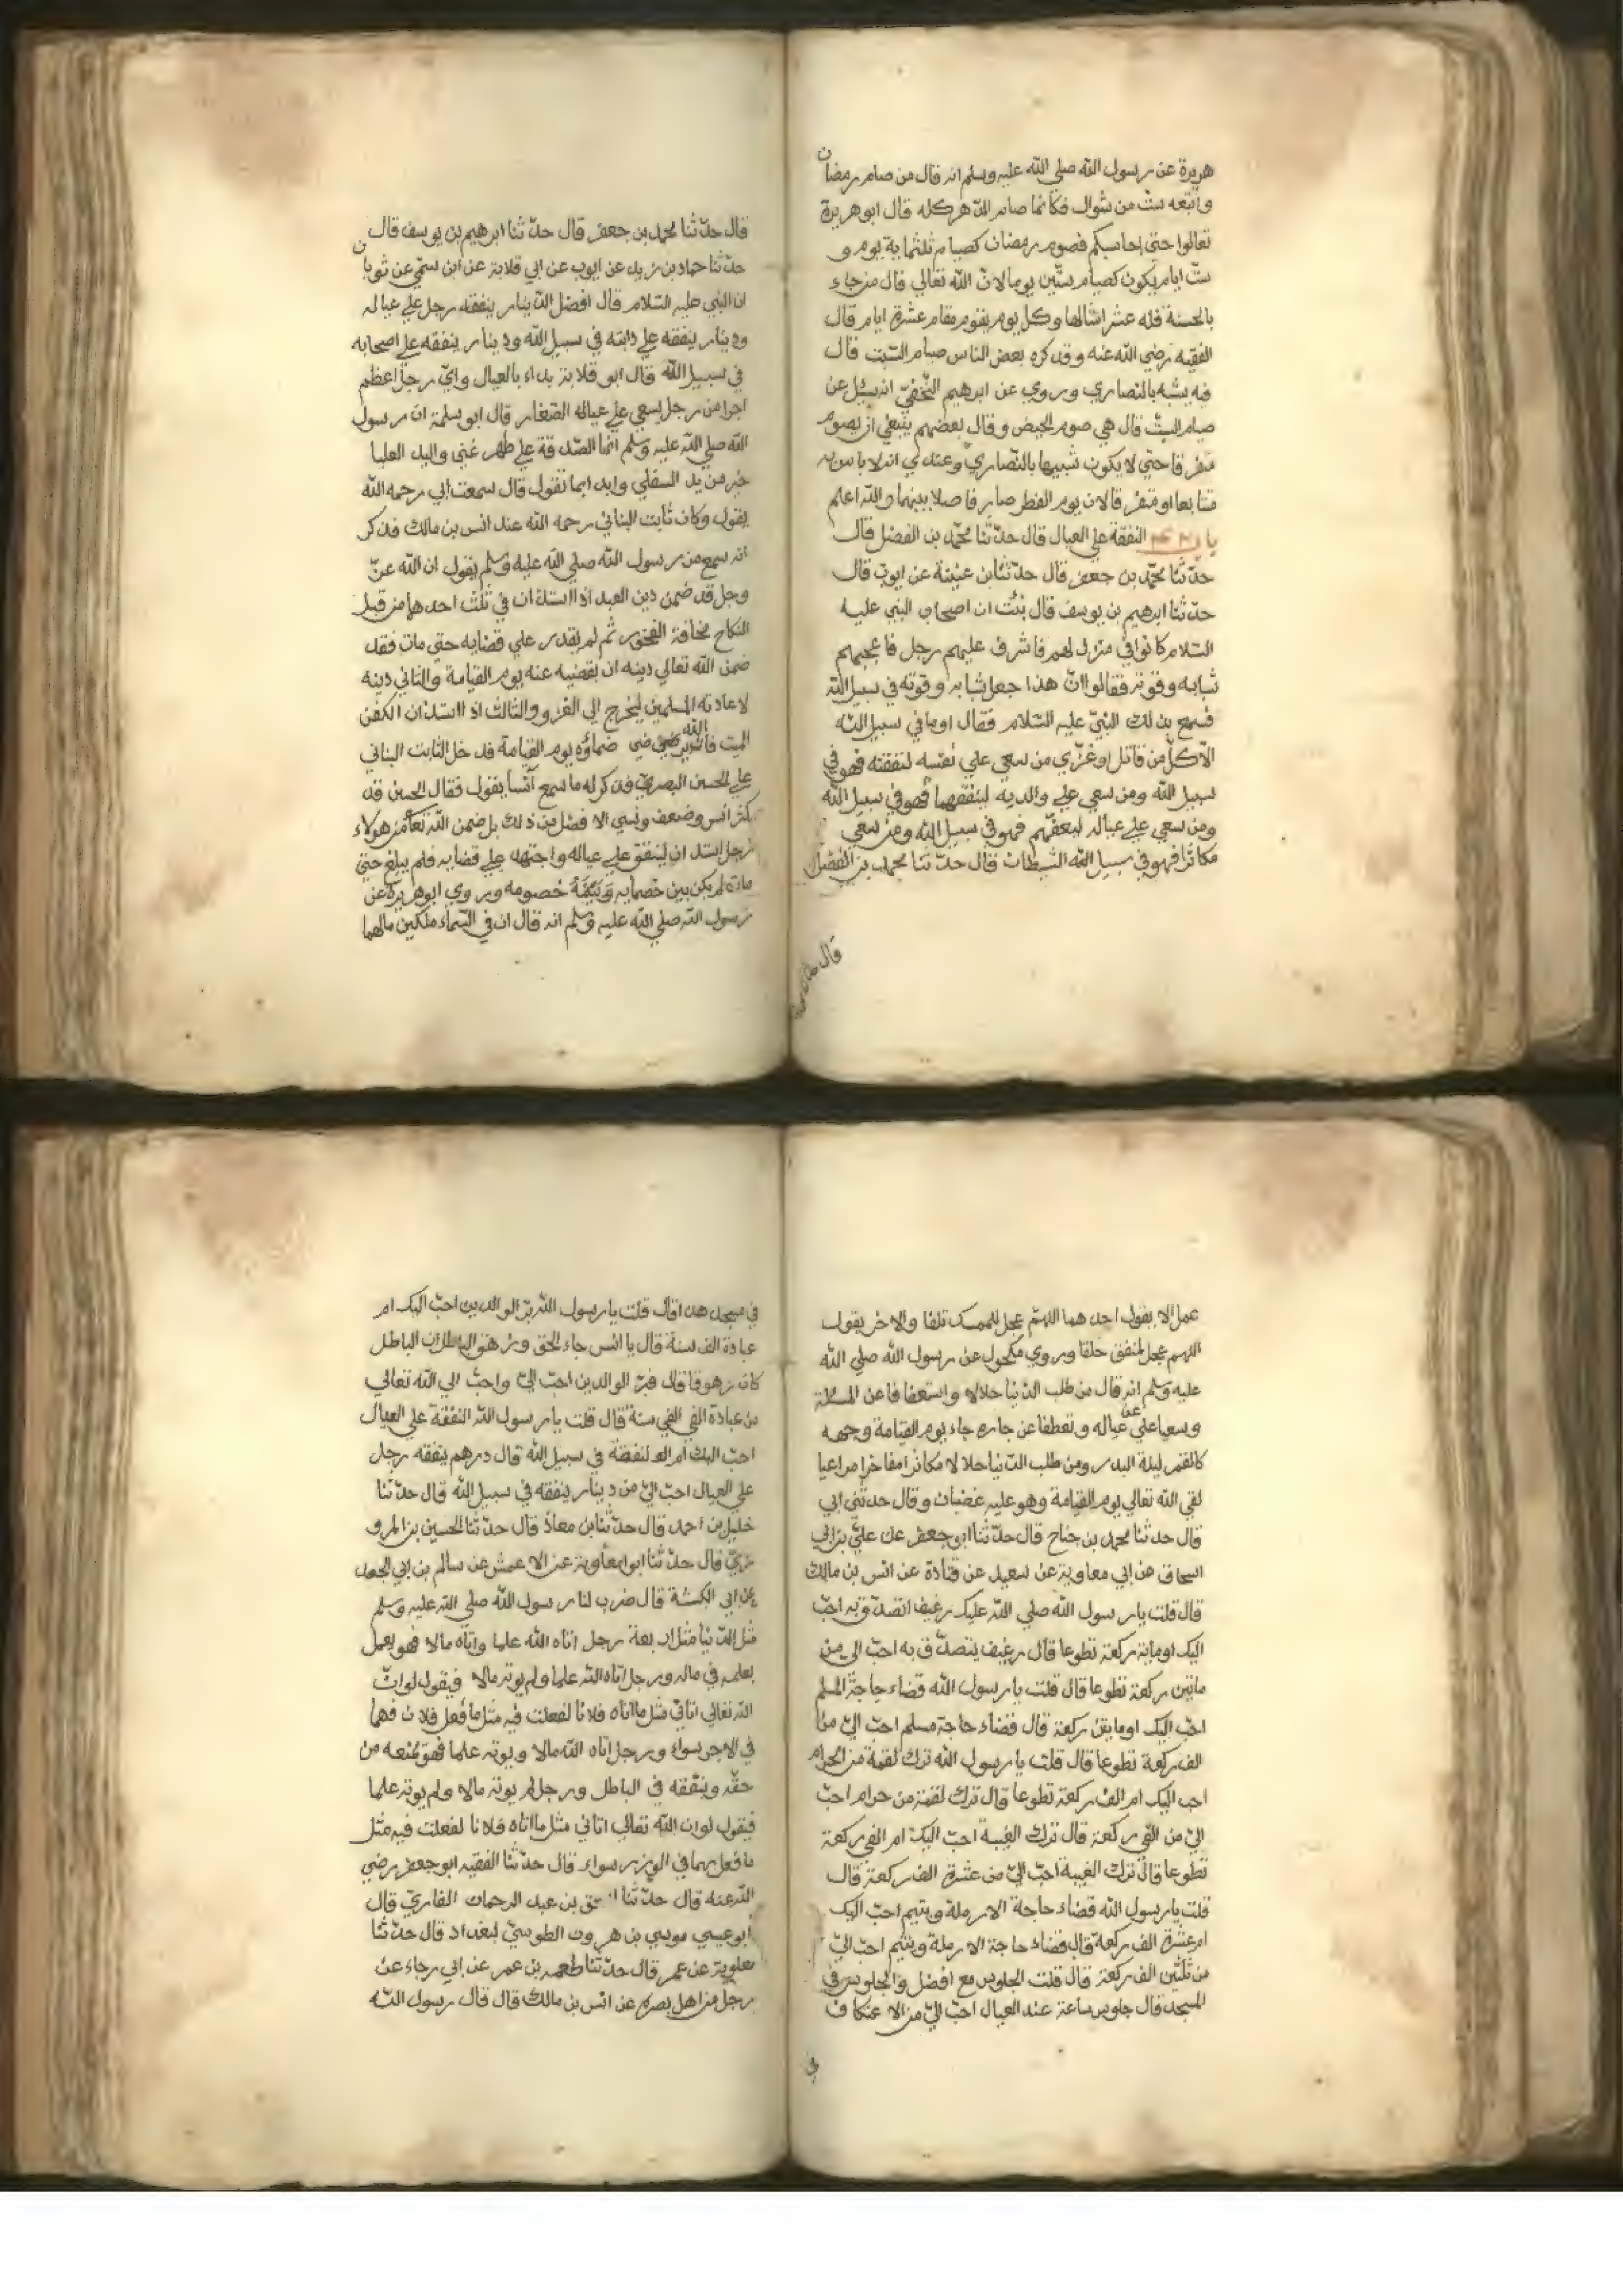 هريرة عن رسول الله صلي الله عليه وسلم انه قال من صام رمضان
واتبعه ست من شوال فكانما صام الدهر كله قال ابو هريرة
تعالوا حتي احاسبكم فصوم رمضان كصيام ثلثماية يوم و
ست ايام يكون كصيام ستين يوما لان الله تعالي قال من جاء
بالحسنة فله عشر امثالها وكل يوم يقوم مقام عشرة ايام قال
الفقيه رضي الله عنه وقد كره بعض الناس صيام الست قال
فيه يشبه بالنصاري وروي عن ابرهيم النخفي انه سئل عن
صيام الست قال هي صوم الحيض وقال بعضهم ينبغي ان يصوم
متفرقا حتي لا يكون شبيها بالنصاري وعندي انه لا باس به
متتابعا او متفرقا لان يوم الفطر صار فاصلا بينهما والله اعلم
باب النفقة علي العيال قال حدثنا محمد بن الفضل قال
حدثنا محمد بن جعفر قال حدثنا بن عيينة عن ايوب قال
حدثنا ابرهيم بن يوسف قال نبئت ان اصحاب النبي عليه
السلام كانوا في منزل لهم فاشرف عليهم رجل فاعجبهم
شبابه وقوته فقالوا ان هذا جعل شبابه وقوته في سبيل الله
فسمع بذلك النبي عليه السلام فقال او ما في سبيل الله
الا كل من قاتل او غزي من سعي علي نفسه لنفقته فهو في
سبيل الله ومن سعي علي والديه لينفقهما فهو في سبيل الله
ومن سعي علي عياله ليعفهم فهو في سبيل الله ومن سعي
مكاثرا فهو في سبيل الشيطان قال حدثنا محمد بن الفضل
قال
قال حدثنا محمد بن جعفر قال حدثنا ابرهيم بن يوسف قال
حدثنا حماد بن زيد عن ايوب عن ابي قلابة عن ابن سمي عن ثوبان
ان النبي عليه السلام قال افضل الدينار ينفقه رجل علي عياله
ودينار ينفقه علي دابته في سبيل الله ودينار ينفقه علي اصحابه
في سبيل الله قال ابو قلابة بداء بالعيال واي رجل اعظم
اجرا من رجل يسعي علي عياله الصغار قال ابو سلمة ان رسول
الله صلي الله عليه وسلم انما الصدقة علي ظهر غني واليد العليا
خير من يد السفلي وابدا بما تقول قال سمعت ابي رحمه الله
يقول وكان ثابت البناني رحمه الله عند انس بن مالك فذكر
انه سمع من رسول الله صلي الله عليه وسلم يقول ان الله عز
وجل قد ضمن دين العبد اذا استدان في ثلث احدها من قبل
النكاح مخافة الفجور ثم لم يقدر علي قضايه حتي مات فقد
ضمن الله تعالي دينه ان يقضيه عنه يوم القيامة والثاني دينه
لاعادته المسلمين ليخرج الي الغزو والثالث اذا استدان الكفن
الميت ضماؤه يوم القيامة فدخل الثابت البناني
علي الحسن البصري فذكر له ما سمع انسا يقول فقال الحسن قد
كبر انس وضعف ونسي الا فضل من ذلك بل ضمن الله تعا من هولاء
رجل استدان لينفق علي عياله واجتهد علي قضايه فلم يبلغ حتي
مات لم يكن بين خصمايه خصومه وروي ابو هريرة عن
رسول الله صلي الله عليه وسلم انه قال ان في السماء ملكين مالهما
عمل الا يقول احدهما اللهم عجل للممسك تلفا والاخر يقول
اللهم عجل لمنفق خلفا وروي مكحول عن رسول الله صلي الله
عليه وسلم انه قال من طلب الدنيا حلالا واستعفافا عن المسئلة
وسعيا علي عياله وتعطفا عن جاره جاء يوم القيامة وجهه
كالقمر ليلة البدر ومن طلب الدنيا حلالا مكاثرا مفاخرا مراعيا
لقي الله تعالي يوم القيامة وهو عليه غضبان وقال حدثني ابي
قال حدثنا محمد بن جناح قال حدثنا ابو جعفر عن علي بن ابي
اسحاق عن ابي معاوية عن سعيد عن قتادة عن انس بن مالك
قال قلت يا رسول الله صلي الله عليك رغيف اتصدق به احب
اليك او ماية ركعة تطوعا قال رغيف يتصدق به احب الي من
ماتين ركعة تطوعا قال قلت يا رسول الله قضاء حاجة المسلم
احب اليك او مايتن ركعة قال قضاء حاجة مسلم احب الي من
الف ركعة تطوعا قال قلت يا رسول الله ترك لقمة من الحرام
احب اليك ام الف ركعة تطوعا قال ترك لقمة من حرام احب
الي من الفي ركعة قال ترك الغيبة احب اليك ام الفي ركعة
تطوعا قال ترك الغيبة احب الي من عشرة الف ركعة قال
قلت يا رسول الله قضاء حاجة الارملة ويتيم احب اليك
ام عشرة الف ركعة قال قضاء حاجة الارملة ويتيم احب الي
من ثلثين الف ركعة قال قلت الجلوس مع افضل والجلوس في
المسجد قال جلوس ساعة عند العيال احب الي من الاعتكاف
في
في مسجد هذا قال قلت يا رسول الله بر الوالدين احب اليك ام
عبادة الف سنة قال يا انس جاء الحق وزهق الباطل ان الباطل
كان زهوقا قال فبر الوالدين احب الي واحب الي الله تعالي
من عبادة الفي الفي سنة قال قلت يا رسول الله النفقة علي العيال
احب اليك ام النفقة في سبيل الله قال درهم ينفقه رجل
علي العيال احب الي من دينار ينفقه في سبيل الله قال حدثنا
خليل بن احمد قال حدثنا بن معاذ قال حدثنا الحسين بن المرو
زي قال حدثنا ابو امعاوية عن الاعمش عن سالم بن ابي الجعد
عن ابي الكبشة قال ضرب لنا رسول الله صلي الله عليه وسلم
مثل الدنيا مثل اربعة رجل اتاه الله علما واتاه مالا فهو يعمل
بعلمه في ماله ورجل اتاه الله علما ولم يوته مالا فيقول لو ان
الله تعالي اتاني مثل ما اتاه فلانا لفعلت فيه مثل ما فعل فلان فهما
في الاجر سواء ورجل اتاه الله مالا ويوته علما فهو يمنعه من
حقه وينفقه في الباطل ورجل لم يوته مالا ولم يوته علما
فيقول لو ان الله تعالي اتاني مثل ما اتاه فلانا لفعلت فيه مثل
ما فعل بهما في الوزر سواء قال حدثنا الفقيه ابو جعفر رضي
الله عنه قال حدثنا اسحق بن عبد الرحمان القاري قال
ابو عيسي موسي بن هرون الطوسي لبغداد قال حدثنا
معاوية عن عمر قال حدثنا طعمه بن عمر عن ابي رجاء عن
رجل من اهل بصره عن انس بن مالك قال قال رسول الله